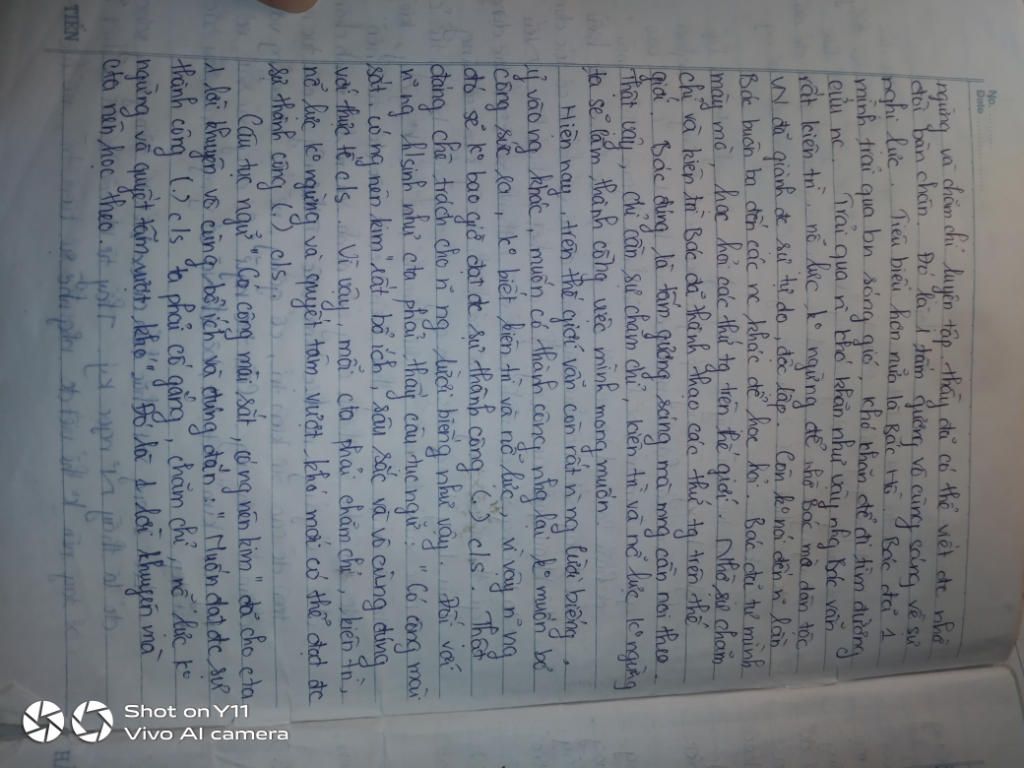 No.
Date
ngừng và chăm chỉ luyện tập thầy đã có thể viết đc nhờ
đôi bàn chân. Đó là 1 tấm gương vô cùng sáng về sự
nghị lực. Tiêu biểu hơn nữa là Bác Hồ. Bác đã 1
mình trải qua bn sóng gió, khó khăn để đi tìm đường
cứu nc. Trải qua n~ khó khăn như vậy nhg Bác vẫn
rất kiên trì, nỗ lực ko ngừng để nhờ Bác mà dân tộc
VN đã giành đc sự tự do, độc lập. Còn ko nói đến n~ lần
Bác buôn ba đến các nc khác để học hỏi. Bác đã tự mình
mày mò, học hỏi các thứ tg trên thế giới. Nhờ sự chăm
chỉ và kiên trì Bác đã thành thạo các thứ tg trên thế
giới. Bác đúng là tấm gương sáng mà mng cần noi theo.
Thật vậy, chỉ cần sự chăm chỉ, kiên trì và nỗ lực ko ngừng
ta sẽ làm thành công việc mình mong muốn.
Hiện nay, trên thế giới vẫn còn rất n~ ng lười biếng,
ỷ vào ng khác, muốn có thành công nhg lại ko muốn bỏ
công sức ra, ko biết kiên trì và nỗ lực, vì vậy n~ ng
đó sẽ ko bao giờ đạt đc sự thành công (.) c/s. Thật
đáng chê trách cho n~ ng lười biếng như vậy. Đối với
n~ ng h/sinh như cta phải thấy câu tục ngữ: "Có công mài
sắt, có ngày nên kim" rất bổ ích, sâu sắc và vô cùng đúng
với thực tế c/s. Vì vậy, mỗi cta phải chăm chỉ, kiên trì,
nỗ lực ko ngừng và quyết tâm vượt khó mới có thể đạt đc
sự thành công (.) c/s.
Câu tục ngữ "Có công mài sắt, có ngày nên kim" đã cho cta
1 lời khuyên vô cùng bổ ích và đúng đắn "Muốn đạt đc sự
thành công (.) c/s ta phải cố gắng, chăm chỉ, nỗ lực ko
ngừng và quyết tâm vượt khó". Đó là 1 lời khuyên mà
cta nên học theo.
TIẾN